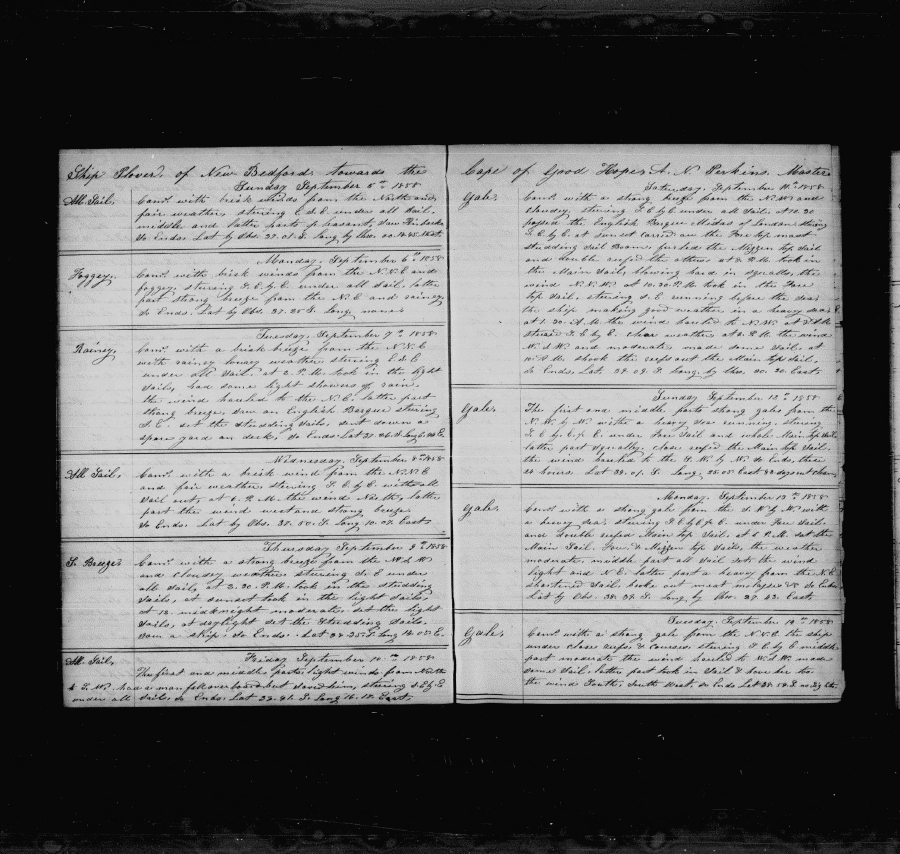 Ship Plover of New Bedford towards the
Sunday September 5th 1858
All Sail. Comd with brisk winds from the North and
fair weather, stering E S E under all Sail,
middle and latter parts pleasant, saw Finbacks
So Ends Lat by Obs. 37. 01. S. Long by Obs.
Monday. September 6th 1858
Foggey. Comd with brisk winds from the N.N.E and
foggey. stering S. E. by E. under all Sail. latter
part strong breeze from the N. E and rainey
So Ends. Lat by Obs. 37. 25 S. Long none
Tuesday. September 7th 1858
Rainey. Comd with a brisk breeze from the N. N. E
with rainey heavey weather stering E S E
under all Sail. at 2. P. M. took in the light
Sails, had some light showers of rain.
the wind hauled to the N. E. latter part
strong breeze. saw an English Barque stering
S. E. set the studding Sails. sent down a
spare yard on deck. So Ends. Lat 37
Wednesday. September 8th 1858
All Sail. Comd with a brisk wind from the N. N E
and fair weather stering S. E by E with all
Sail out, at 6. P. M. the wind North, latter
part the wind west and strong breeze
So Ends. Lat by Obs. 37. 50. S. Long 10. 07. East
Thursday September 9th 1858
S. Breeze Comd with a strong breeze from the W. S W
and cloudy weather stering S. E under
all Sail, at 3. 30. P. M. took in the studding
Sails, at sunset took in the light Sails,
at 12. midnight moderate. set the light
Sails, at daylight set the Studding Sails.
saw a ship. So Ends. Lat 38. 25. S. Long 14. 05. E.
Friday September 10th 1858
All Sail. The first and middle parts light winds from North
& E. W. had a man fall overboard but saved him, stering S E by E
under all Sail. So Ends. Lat 38. 41. S. Long 16. 12. East
Cape of Good Hope, A. N Perkins. Master
Saturday. September 11th 1858
Gale. Comd with a strong breeze from the N. W and
cloudey, stering S. E by E under all Sail. at 12. 30
passed the English Barque Midas of London stering
S. E by E. at sunset carried away the Fore top mast
studding Sail Boom. furled the Mizzen top Sail
and double reefed the others at 8. P. M. took in
the Main Sail, blowing hard in squalls, the
wind N. N. W. at 10. 30 P. M took in the Fore
top Sail. stering S. E running before the sea
the ship making good weather in a heavey sea
at 1. 30. A. M the wind hauled to N. W. at 3 A M
steared S. E by E. clear weather at 6. A. M. the wind
W. S W. and moderate made some Sail, at
10 A. M. shook the reefs out the Main top Sail,
So Ends. Lat. 38. 08. S. Long. by Obs. 20. 20. East
Sunday September 12th 1858
Gale. The first and middle parts strong gales from the
N. W. by N. with a heavy sea running, stering
S. E by E. & E. under Fore Sail and whole Main top Sail
latter part squalley. close reefed the Main top Sail
the wind hauled to the W. by N. So Ends, these
24 hours. Lat 38. 01. S. Long. 25. 05 East
Monday. September 13th 1858
Gale. Comd with a strong gale from the S. W by W. with
a heavy sea, stering S E by E & E. under Fore Sail.
and double reefed Main top Sail. at 6 P. M. set the
Main Sail. Fore & Mizzen top Sails, the weather
moderate, middle part all Sail set. the wind
light and N. E. latter part a heavy from the N. E
Shortened Sail. broke out meat molasses &c So Ends
Lat by Obs. 38. 38. S. Long by Obs. 27. 23. East
Tuesday. September 14th 1858
Gale. Comd with a strong gale from the N. N. E the ship
under close reefs & courses stering S. E by E middle
part moderate the wind hauled to W. S W. made
some Sail latter part took in Sail & have her to.
the wind South, South West, So Ends Lat 38.